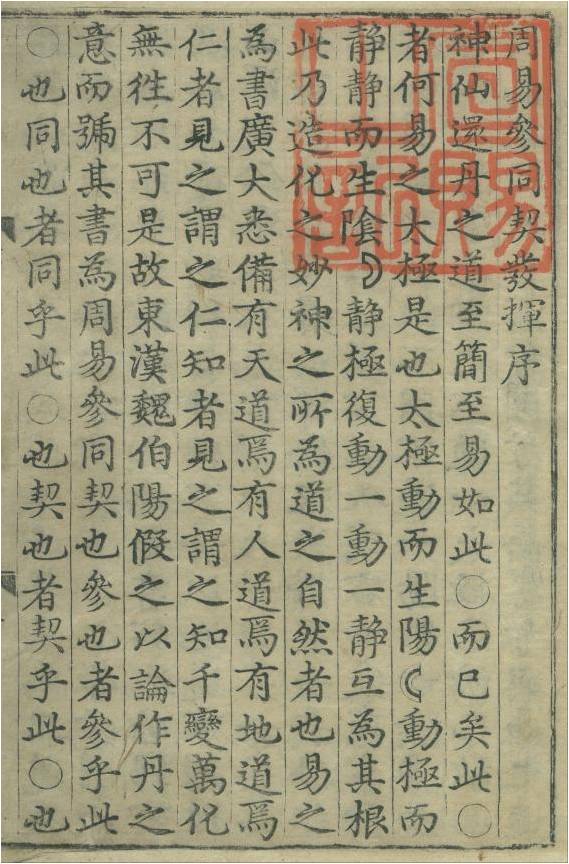 周易參同契發揮序
神仙還丹之道至簡至易如此○而已矣此○
者何易之太極是也太極動而生陽☾動極而
静静而生陰☽静極復動一動一静互為其根
此乃造化之妙神之所為道之自然者也易之
為書廣大悉備有天道焉有人道焉有地道焉
仁者見之謂之仁知者見之謂之知千變萬化
無徃不可是故東漢魏伯陽假之以論作丹之
意而號其書為周易參同契也參也者參乎此
○也同也者同乎此○也契也者契乎此○也